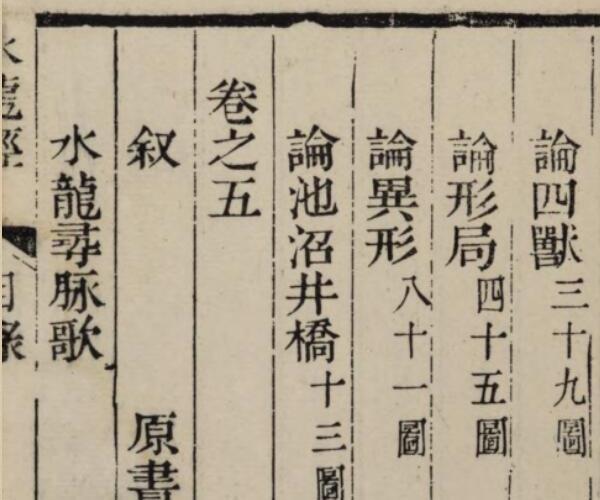 論四獸三十九圖
論形局四十五圖
論異形八十一圖
論池沼井橋十三圖
卷之五
叙 原書
水龍尋脉歌
水龍經 目錄